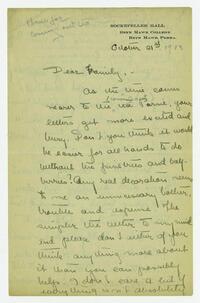 ROCKEFELLER HALL
BRYN MAWR COLLEGE
BRYN MAWR PENNA.
October 21st 1913
Dear Family, -
As the time comes
nearer to the tea, your
letters get more excited and
busy. Don't you think it would
be easier for all hands to do
without the
Any real decoration seems
to me an unnecessary bother,
trouble and expense. The
simpler the better to my mind
and please don't either of you
think anything more about
it than you can possibly
help. I don't care a bit if
everything isn't absolutely